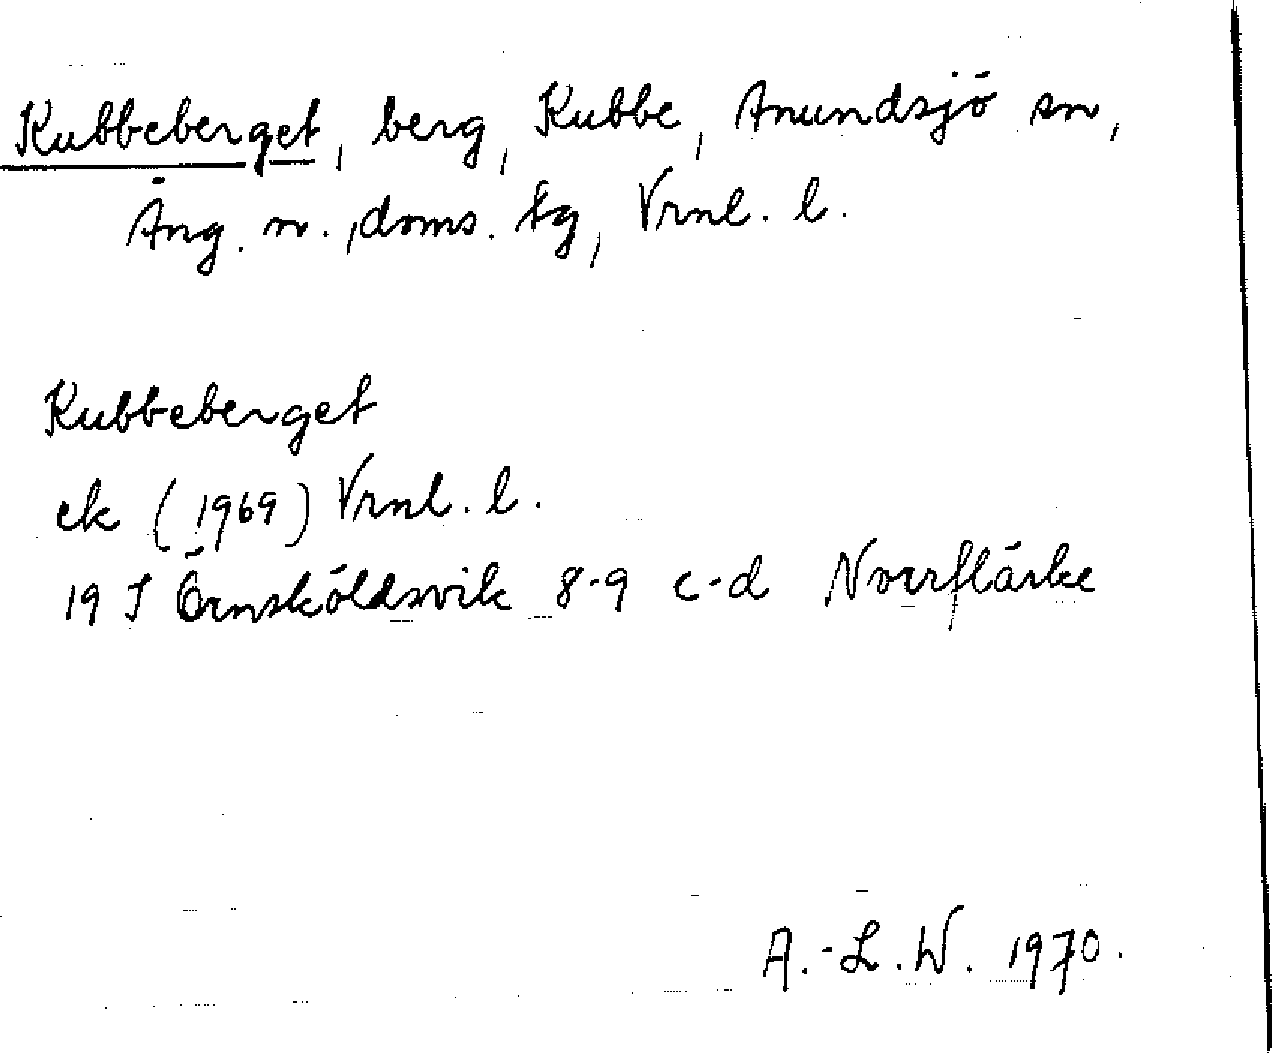 Kubbeberget, berg, Kubbe, Anundsjö sn,
Ång. n., doms. tg, Vrnl. l.
Kubbeberget
ek (1969) Vrnl. l.
19 J Örnsköldsvik 8-9 c-d Norrflärke
A.-L.W. 1970.